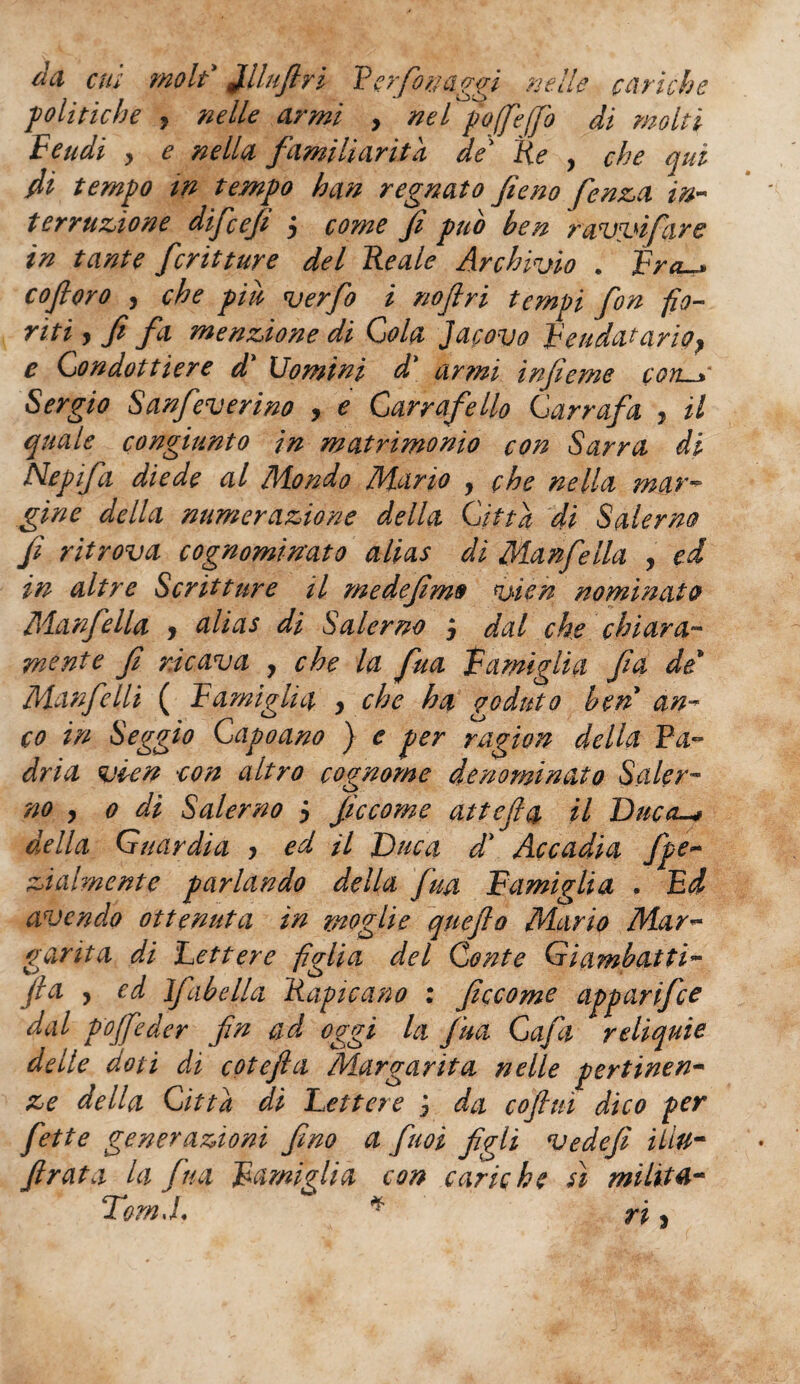 da cui molt' Illuſtri Perſonaggi nelle cariche
politiche , nelle armi , nel poſſeſſo di molti
Feudi , e nella familiarità de' Re , che qui
di tempo in tempo han regnato ſieno ſenza in-
terruzione diſceſi ; come ſi può ben ravviſare
in tante ſcritture del Reale Archivio . Fra
coſtoro , che più verſo i noſtri tempi ſon fio-
riti , ſi fa menzione di Cola Jacovo Feudatario,
e Condottiere d' Uomini d' armi inſieme con
Sergio Sanſeverino , e Carrafello Carrafa , il
quale congiunto in matrimonio con Sarra di
Nepiſa diede al Mondo Mario , che nella mar-
gine della numerazione della Città di Salerno
ſi ritrova cognominato alias di Manſella , ed
in altre Scritture il medeſimo vien nominato
Manſella , alias di Salerno ; dal che chiara-
mente ſi ricava , che la ſua Famiglia ſia de'
Manſelli ( Famiglia , che ha goduto ben' an-
co in Seggio Capoano ) e per ragion della Pa-
dria vien con altro cognome denominato Saler-
no , o di Salerno ; ſiccome atteſta il Duca
della Guardia , ed il Duca d' Accadia ſpe-
zialmente parlando della ſua Famiglia . Ed
avendo ottenuta in moglie queſto Mario Mar-
garita di Lettere figlia del Conte Giambatti-
ſta , ed Iſabella Rapicano : ſiccome appariſce
dal poſſeder fin ad oggi la ſua Caſa reliquie
delle doti di coteſta Margarita nelle pertinen-
ze della Città di Lettere ; da coſtui dico per
ſette generazioni fino a ſuoi figli vedeſi illu-
ſtrata la ſua Famiglia con cariche sì milita-
Tom.I. * ri ,